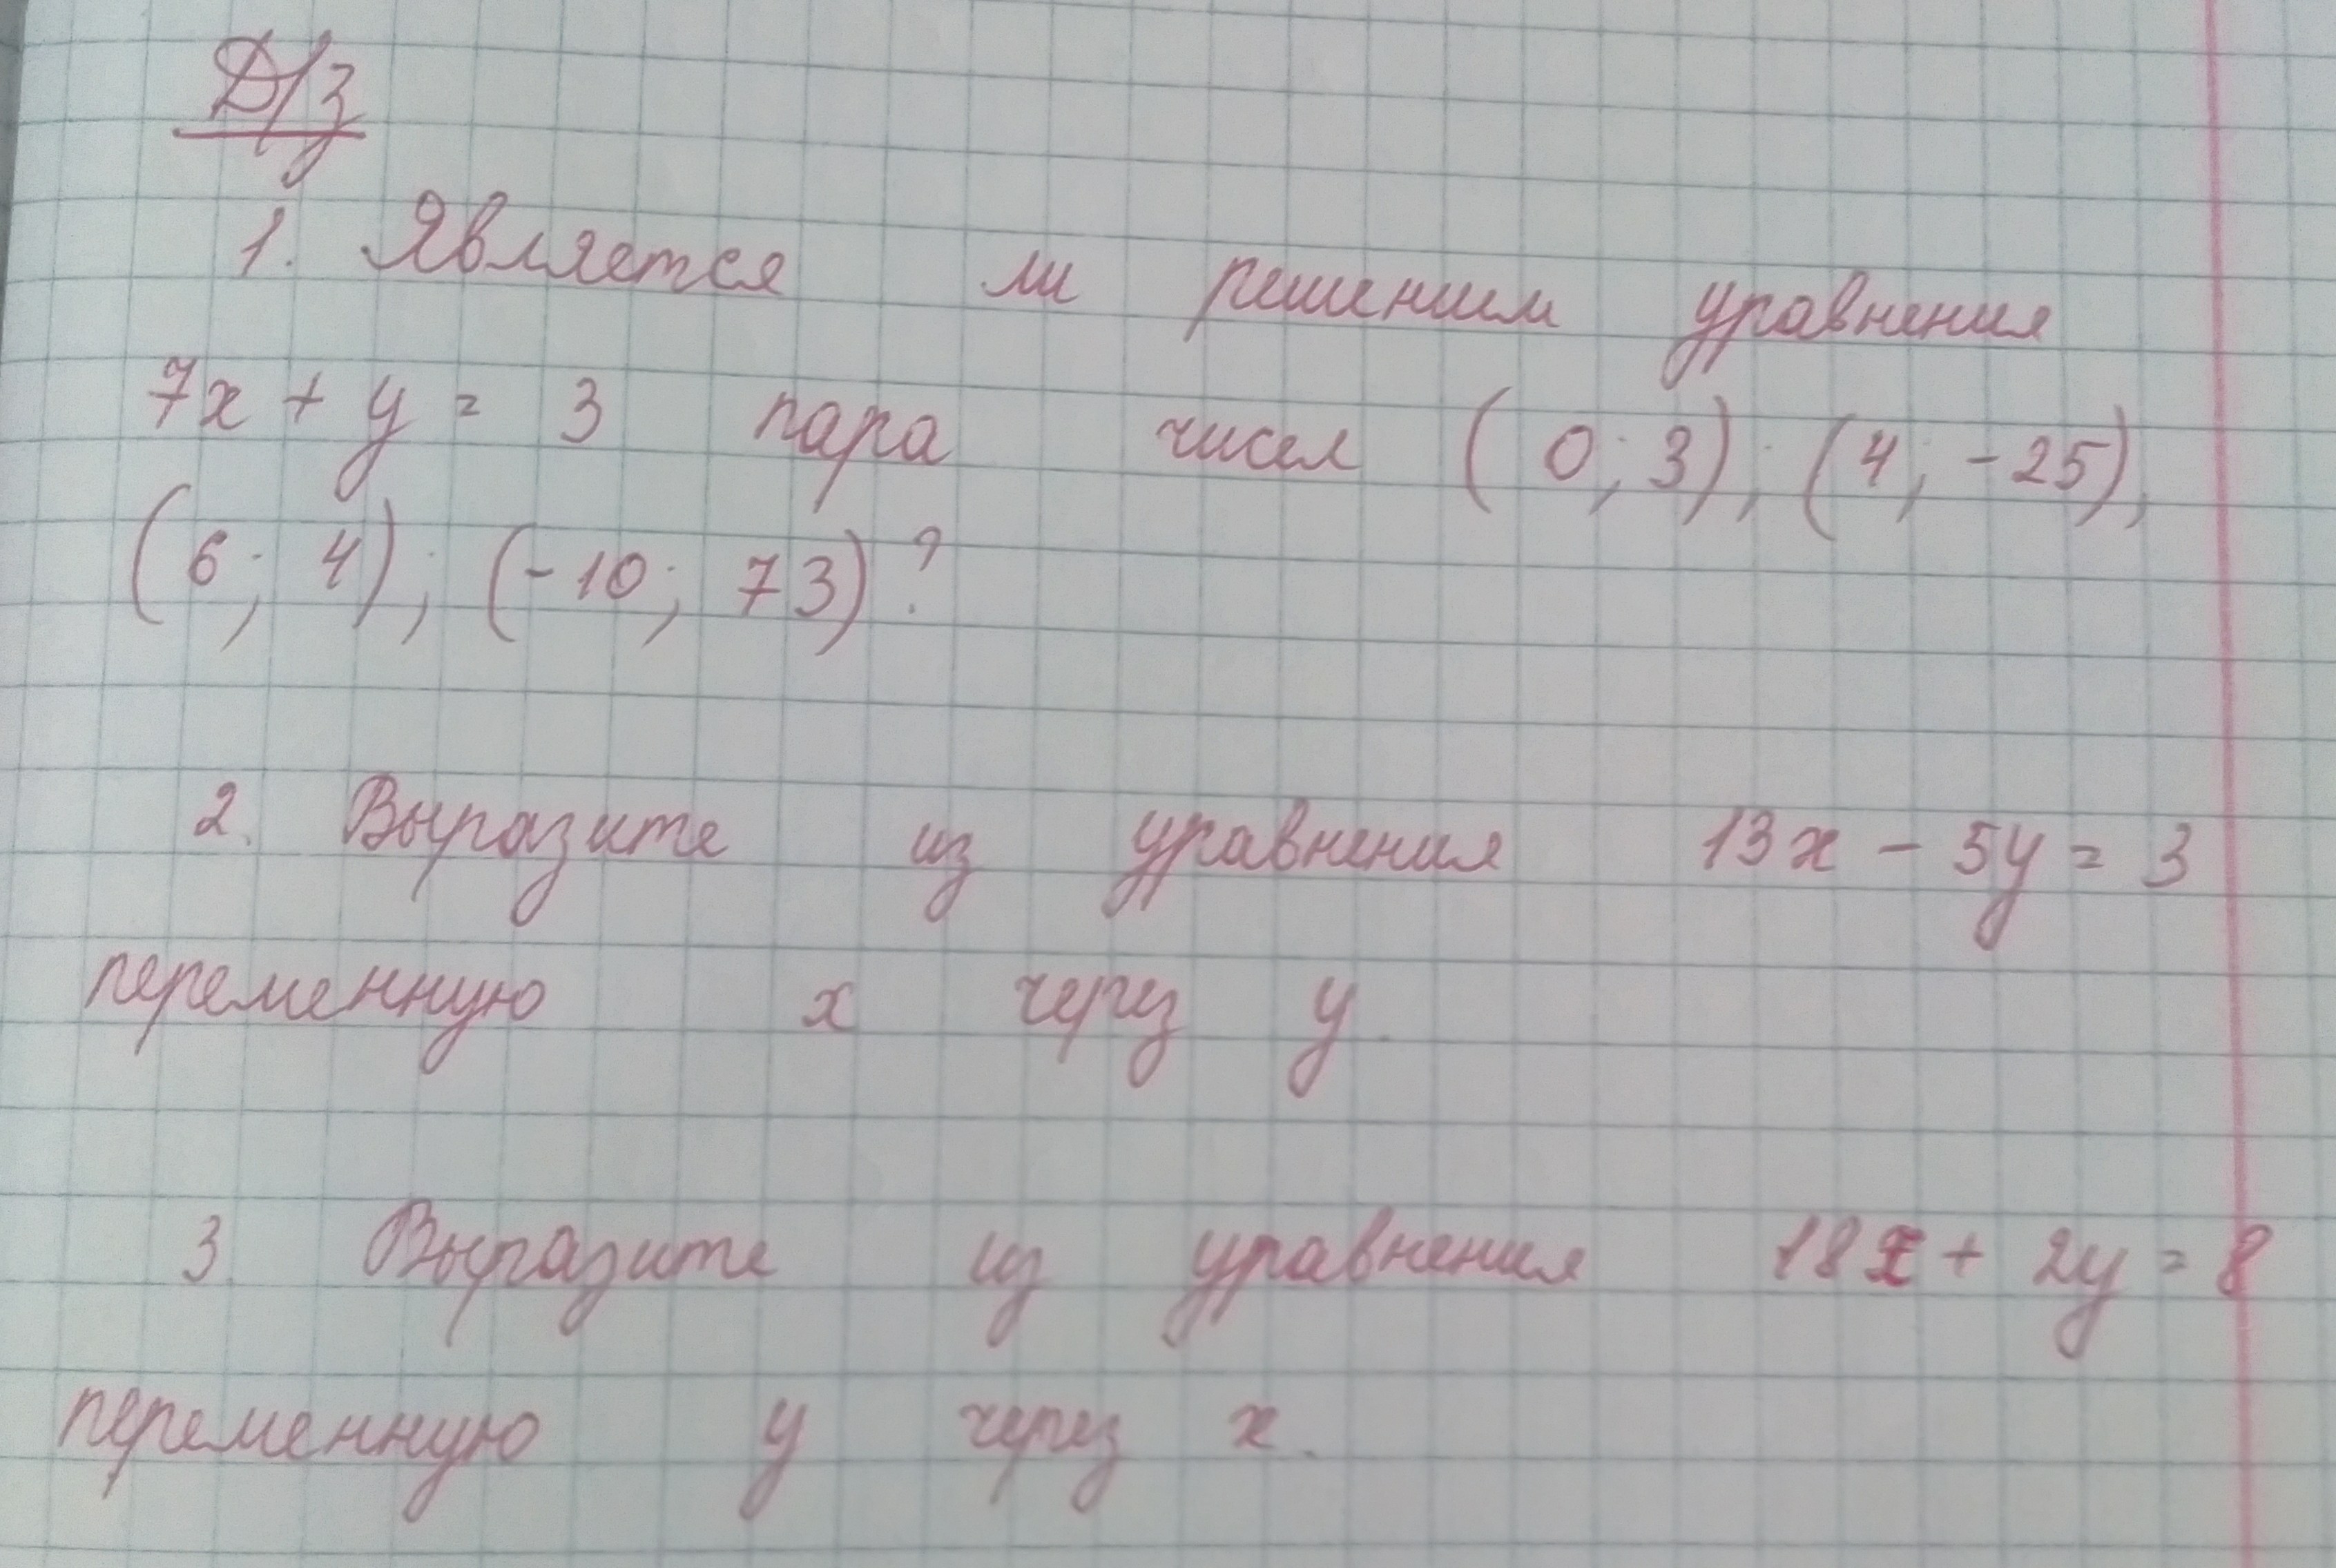 Д/з
1. Является ли решением уравнения
7x + y = 3 пара чисел (0; 3); (4; -25),
(6; 4); (-10; 73)?
2. Выразите из уравнения 13x - 5y = 3
переменную x через y.
3. Выразите из уравнения 18x + 2y = 8
переменную y через x.